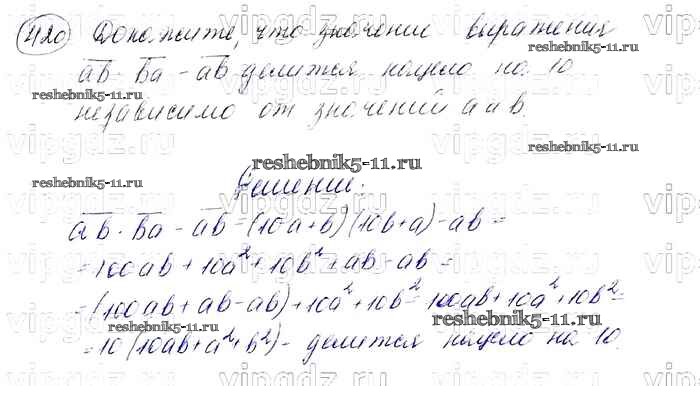 420 Докажите, что значение выражения
ab · ba - ab делится нацело на 10
независимо от значений a и b.
Решение:
ab · ba - ab = (10a+b)(10b+a) - ab =
= 100ab + 10a² + 10b² + ab - ab =
= (100ab + ab - ab) + 10a² + 10b² = 100ab + 10a² + 10b² =
= 10 (10ab + a² + b²) - делится нацело на 10
reshebnik5-11.ru
reshebnik5-11.ru
reshebnik5-11.ru
reshebnik5-11.ru
reshebnik5-11.ru
reshebnik5-11.ru